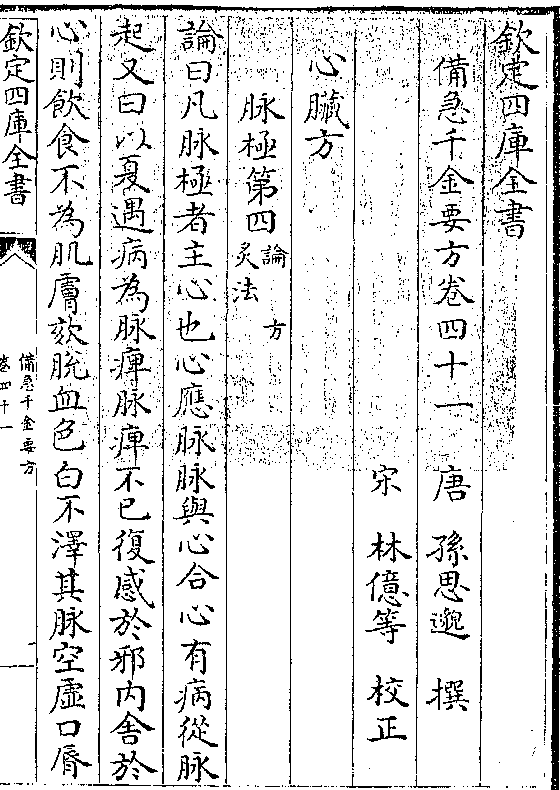 欽定四庫全書
備急千金要方卷四十一　唐　孫思邈　撰
宋　林億等　校正
心臟方
脉極第四論　方
灸法
論曰凡脉極者主心也心應脉脉與心合心有病從脉
起又曰以夏遇病為脉痺脉痺不已復感於邪内舎於
心則飲食不為肌膚欬脱血色白不澤其脉空虛口唇
欽定四庫全書
備急千金要方
卷四十一
一